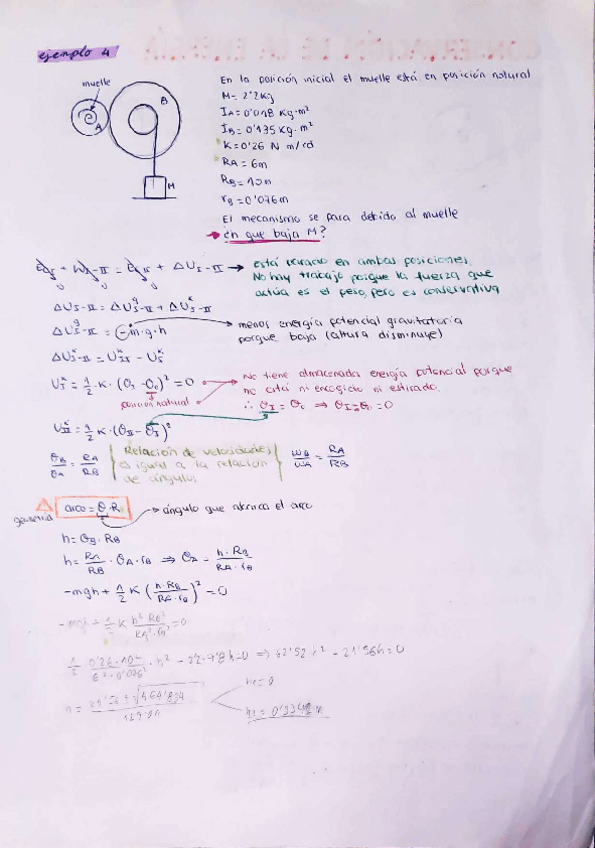 ejemplo 4
muelle
A
B
M
En la posición inicial el muelle está en posición natural
M = 2'2 Kg
IA = 0'018 Kg·m²
IB = 0'135 Kg·m²
K = 0'26 N m/rd
RA = 6m
RB = 10m
rB = 0'076m
El mecanismo se para debido al muelle
¿en que baja M?
está parado en ambas posiciones.
No hay trabajo porque la fuerza que
actúa es el peso, pero es conservativa
ΔUI-II = ΔU^g I-II + ΔU^k I-II
ΔU^g I-II = -m·g·h
menos energía potencial gravitatoria
porque baja (altura disminuye)
ΔU^k I-II = U^k II - U^k I
U^k I = 1/2 · K · (θI - θ0)² = 0
posición natural
No tiene almacenada energía potencial porque
no está ni encogido ni estirado.
∴ θI = θ0 ⇒ θI = θ0 = 0
U^k II = 1/2 K · (θII - θI)²
θB/θA = RA/RB
Relación de velocidades
es igual a la relación
de ángulos
ωB/ωA = RA/RB
geometría
arco = θ·R
ángulo que abarca el arco
h = θB · RB
h = RA/RB · θA · rB ⇒ θA = h·RB/RA·rB
-mgh + 1/2 K (h·RB/RA·rB)² = 0
-mgh + 1/2 K h² RB²/RA²·rB² = 0
1/2 0'26·10²/6²·0'076² · h² - 21'98 h = 0 ⇒ 62'52 h² - 21'56h = 0
h1 = 0